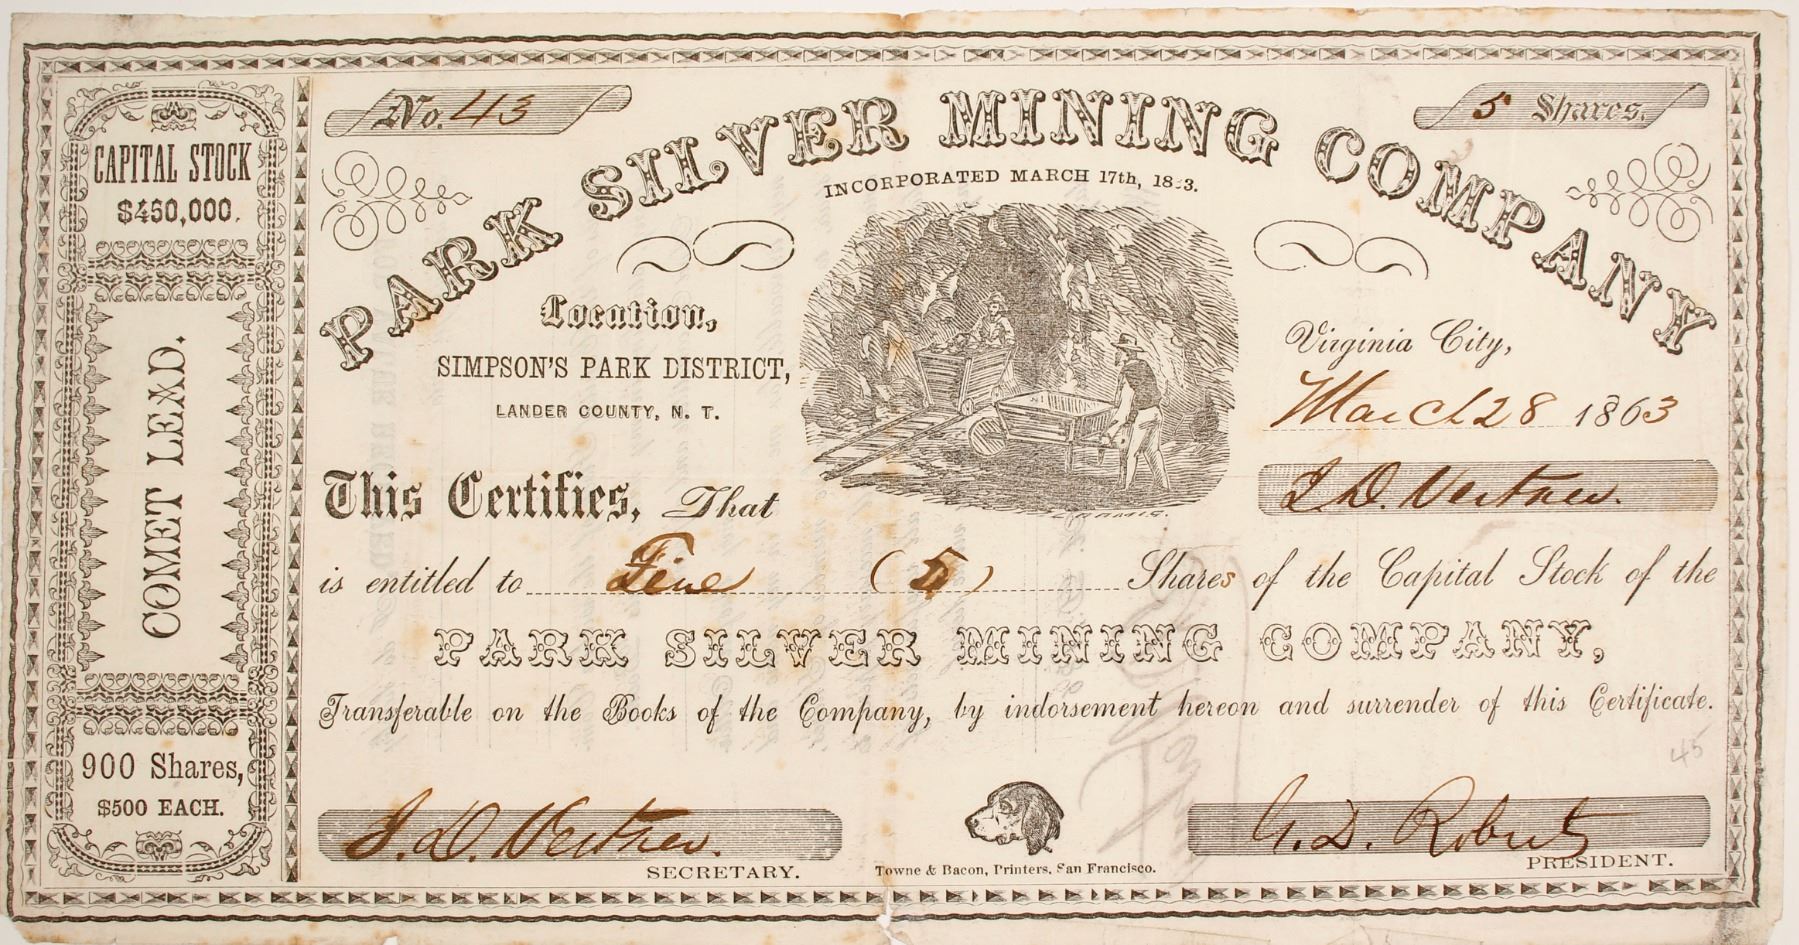 No. 43
5 Shares.
PARK SILVER MINING COMPANY
INCORPORATED MARCH 17th, 1863.
CAPITAL STOCK
$450,000.
COMET LEAD.
900 Shares,
$500 EACH.
Location,
SIMPSON'S PARK DISTRICT,
LANDER COUNTY, N. T.
Virginia City,
March 28 1863
This Certifies, That J. D. Vertner.
is entitled to Five (5) Shares of the Capital Stock of the
PARK SILVER MINING COMPANY,
Transferable on the Books of the Company, by indorsement hereon and surrender of this Certificate.
45
J. D. Vertner.
SECRETARY.
Towne & Bacon, Printers, San Francisco.
G. D. Roberts
PRESIDENT.